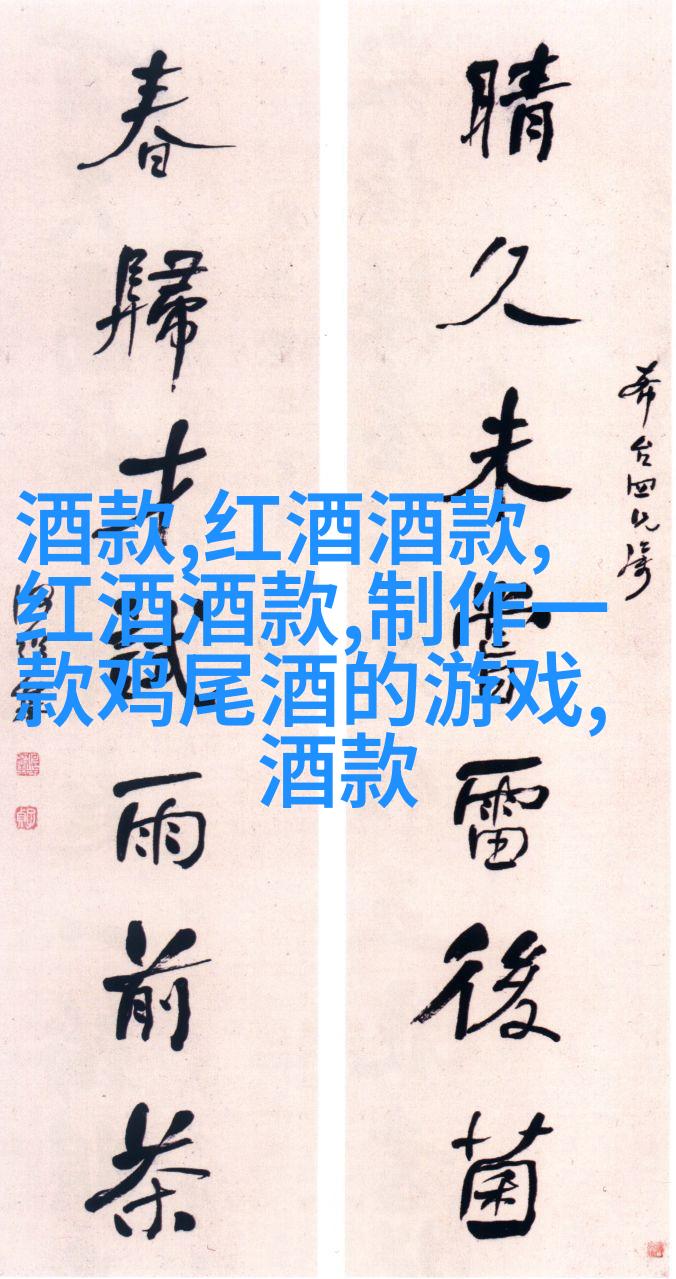 晴久未嘗雷後菌
春歸才試雨前茶
酒款,红酒酒款,
红酒酒款,制作一
款鸡尾酒的游戏,
酒款